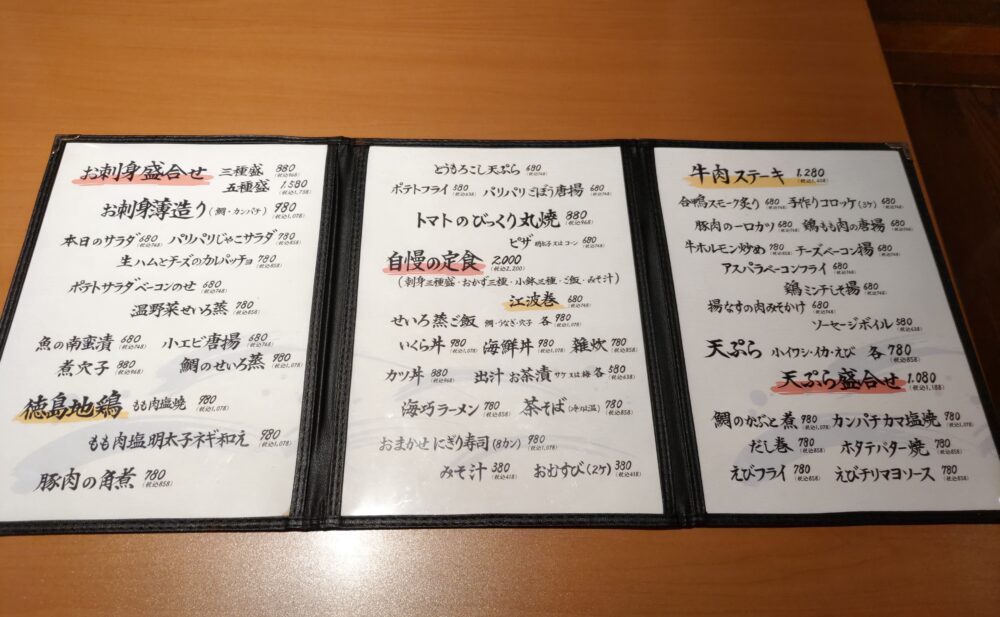 お刺身盛合せ 三種盛 880 (税込968)
五種盛 1,580 (税込1,738)
お刺身薄造り(鯛・カンパチ) 980 (税込1,078)
本日のサラダ 680 (税込748) パリパリじゃこサラダ 780 (税込858)
生ハムとチーズのカルパッチョ 780 (税込858)
ポテトサラダベーコンのせ 680 (税込748)
温野菜せいろ蒸 780 (税込858)
魚の南蛮漬 680 (税込748) 小エビ唐揚 680 (税込748)
煮穴子 880 (税込968) 鯛のせいろ蒸 780 (税込858)
徳島地鶏 もも肉塩焼 980 (税込1,078)
もも肉塩明太子ネギ和え 980 (税込1,078)
豚肉の角煮 780 (税込858)
とうもろこし天ぷら 680 (税込748)
ポテトフライ 580 (税込638) パリパリごぼう唐揚 680 (税込748)
トマトのびっくり丸焼 880 (税込968)
ピザ 明太子又はコーン 680 (税込748)
自慢の定食 2,000 (税込2,200)
(刺身三種盛・おかず三種・小鉢三種・ご飯・みそ汁)
江波巻 680 (税込748)
せいろ蒸ご飯 鯛・うなぎ・穴子 各 980 (税込1,078)
いくら丼 980 (税込1,078) 海鮮丼 980 (税込1,078) 雑炊 780 (税込858)
カツ丼 880 (税込968) 出汁お茶漬 サケ又は梅 各 580 (税込638)
海巧ラーメン 780 (税込858) 茶そば(冷又は温) 780 (税込858)
おまかせにぎり寿司(8カン) 980 (税込1,078)
みそ汁 380 (税込418) おむすび(2ケ) 380 (税込418)
牛肉ステーキ 1,280 (税込1,408)
合鴨スモーク炙り 680 (税込748) 手作りコロッケ(3ケ) 680 (税込748)
豚肉の一口カツ 680 (税込748) 鶏もも肉の唐揚 680 (税込748)
牛ホルモン炒め 780 (税込858) チーズベーコン揚 680 (税込748)
アスパラベーコンフライ 680 (税込748)
鶏ミンチしそ揚 680 (税込748)
揚なすの肉みそかけ 680 (税込748)
ソーセージボイル 580 (税込638)
天ぷら 小イワシ・イカ・えび 各 780 (税込858)
天ぷら盛合せ 1,080 (税込1,188)
鯛のかぶと煮 780 (税込858) カンパチカマ塩焼 780 (税込858)
だし巻 780 (税込858) ホタテバター焼 780 (税込858)
えびフライ 780 (税込858) えびチリマヨソース 780 (税込858)